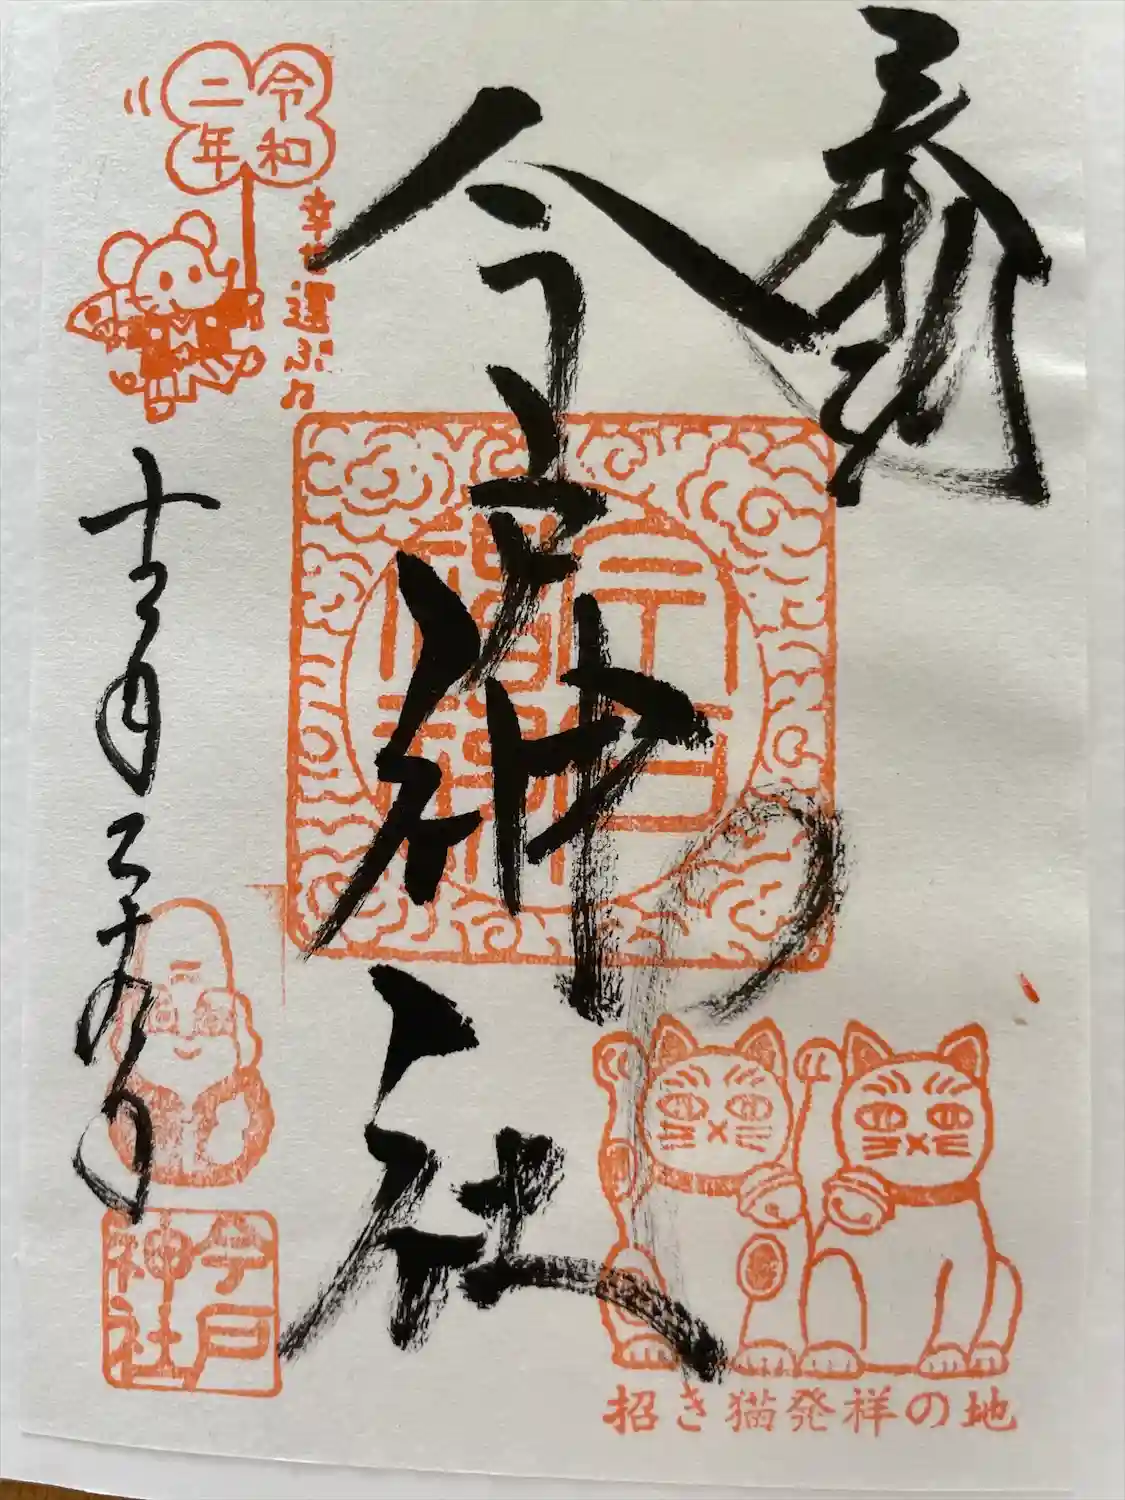 奉拝
今戸神社
令和
二年
幸せ運ぶ♪
十二月二十九日
今戸
神社
招き猫発祥の地